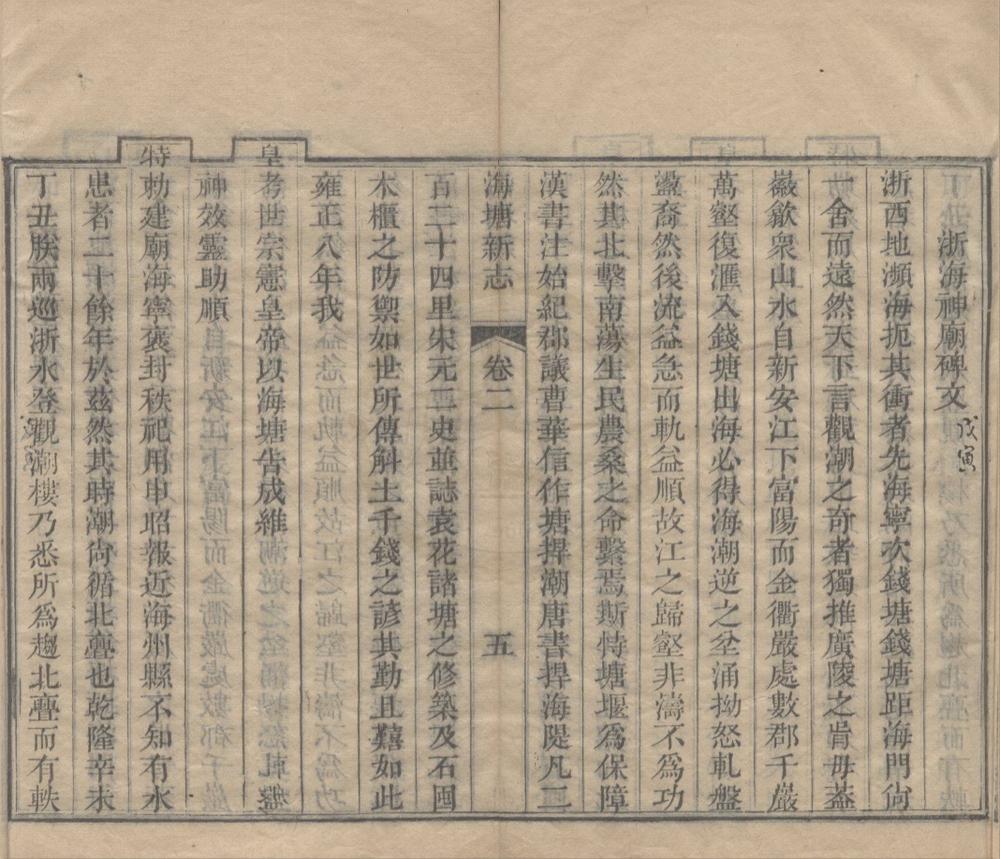 浙海神廟碑文 戊寅
浙西地瀕海扼其衝者先海寧次錢塘錢塘距海門尙
一舍而遠然天下言觀潮之奇者獨推廣陵之胥毋葢
巖歙衆山水自新安江下富陽而金衢嚴處數郡千巖
萬壑復滙入錢塘出海必得海潮逆之坌涌拗怒軋盤
盭裔然後流益急而軌益順故江之歸壑非濤不爲功
然其北擊南蕩生民農桑之命繫焉斯恃塘堰爲保障
漢書注始紀郡議曹華信作塘捍潮唐書捍海隄凡二
海塘新志 卷二 五
百二十四里宋元二史並誌袁花諸塘之修築及石囤
木櫃之防禦如世所傳斛土千錢之諺其勤且囏如此
雍正八年我
皇考世宗憲皇帝以海塘告成維
神效靈助順
特勅建廟海寧褒封秩祀用申昭報近海州縣不知有水
患者二十餘年於茲然其時潮尙循北亹也乾隆辛未
丁丑朕兩巡浙水登觀潮樓乃悉所爲趨北亹而有軼